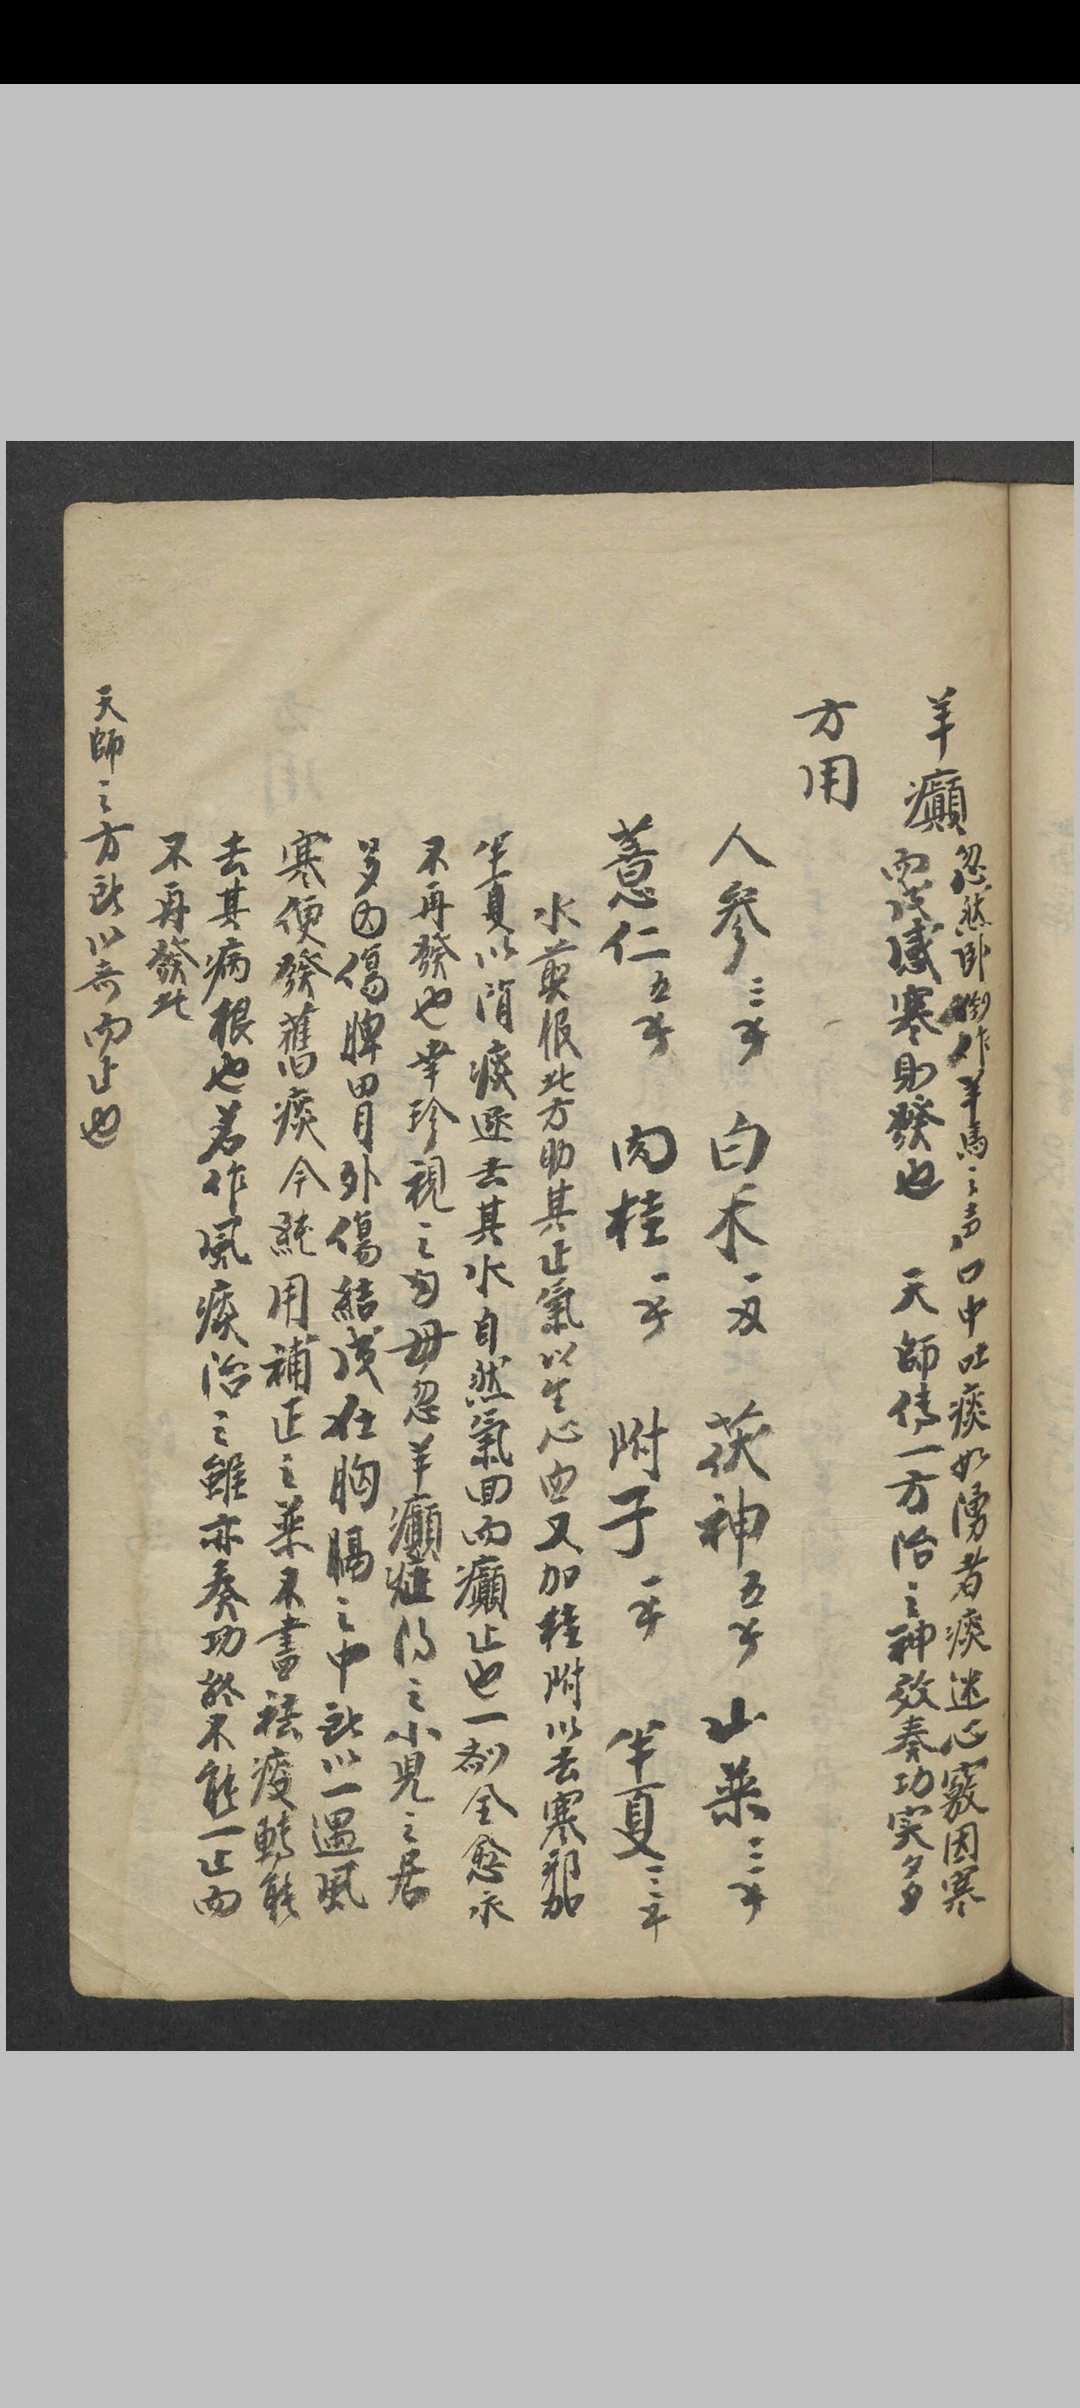 羊癲
忽然卧倒作羊馬之声口中吐痰如湧者痰迷心竅因寒
而成感寒則發也 天師傳一方治之神效奏功実多
方用
人參三錢 白朮一両 茯神五錢 山藥三錢
薏仁五錢 肉桂一錢 附子一錢 半夏三錢
水煎服此方助其正氣以生心血又加桂附以去寒邪加
半夏以消痰逐去其水自然氣回而癲止也一剤全愈永
不再發也幸珍視之勿毋忽羊癲症得之小児之居
多内傷脾胃外傷結成在胸膈之中所以一遇風
寒便發舊痰今純用補正之藥不盡祛痰轉能
去其病根也若作風痰治之雖亦奏功終不能一止而
不再發此
天師之方所以奇而止也